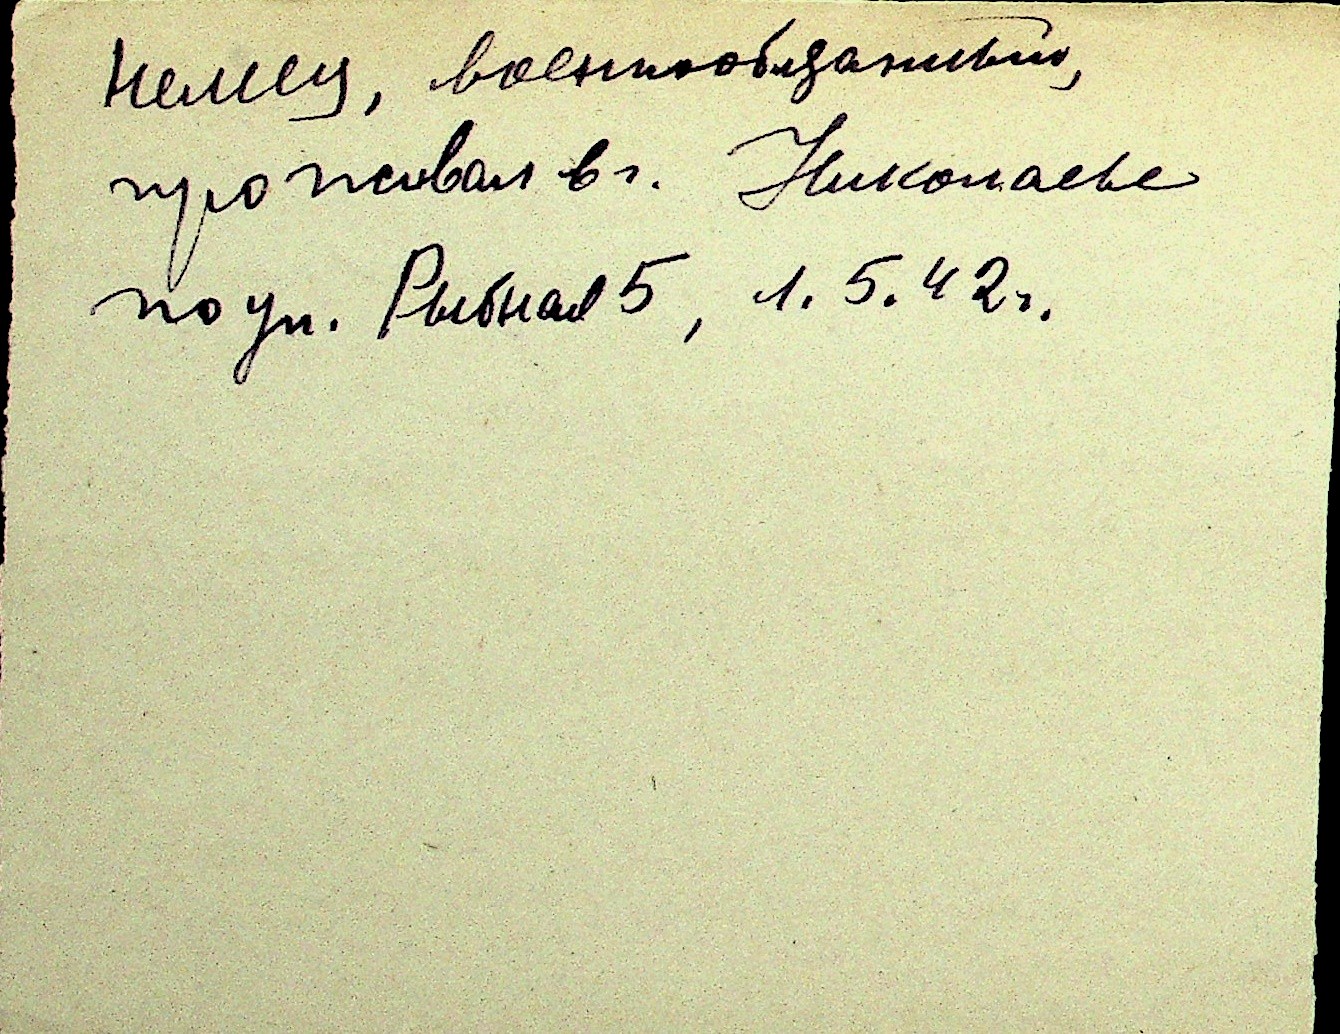 немец, военнообязанный,
проживал в г. Николаеве
по ул. Рыбная 5, 1.5.42г.